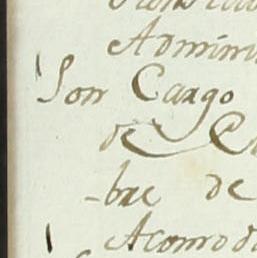 Admini
Son Cargo
de
-bre de
Acomod